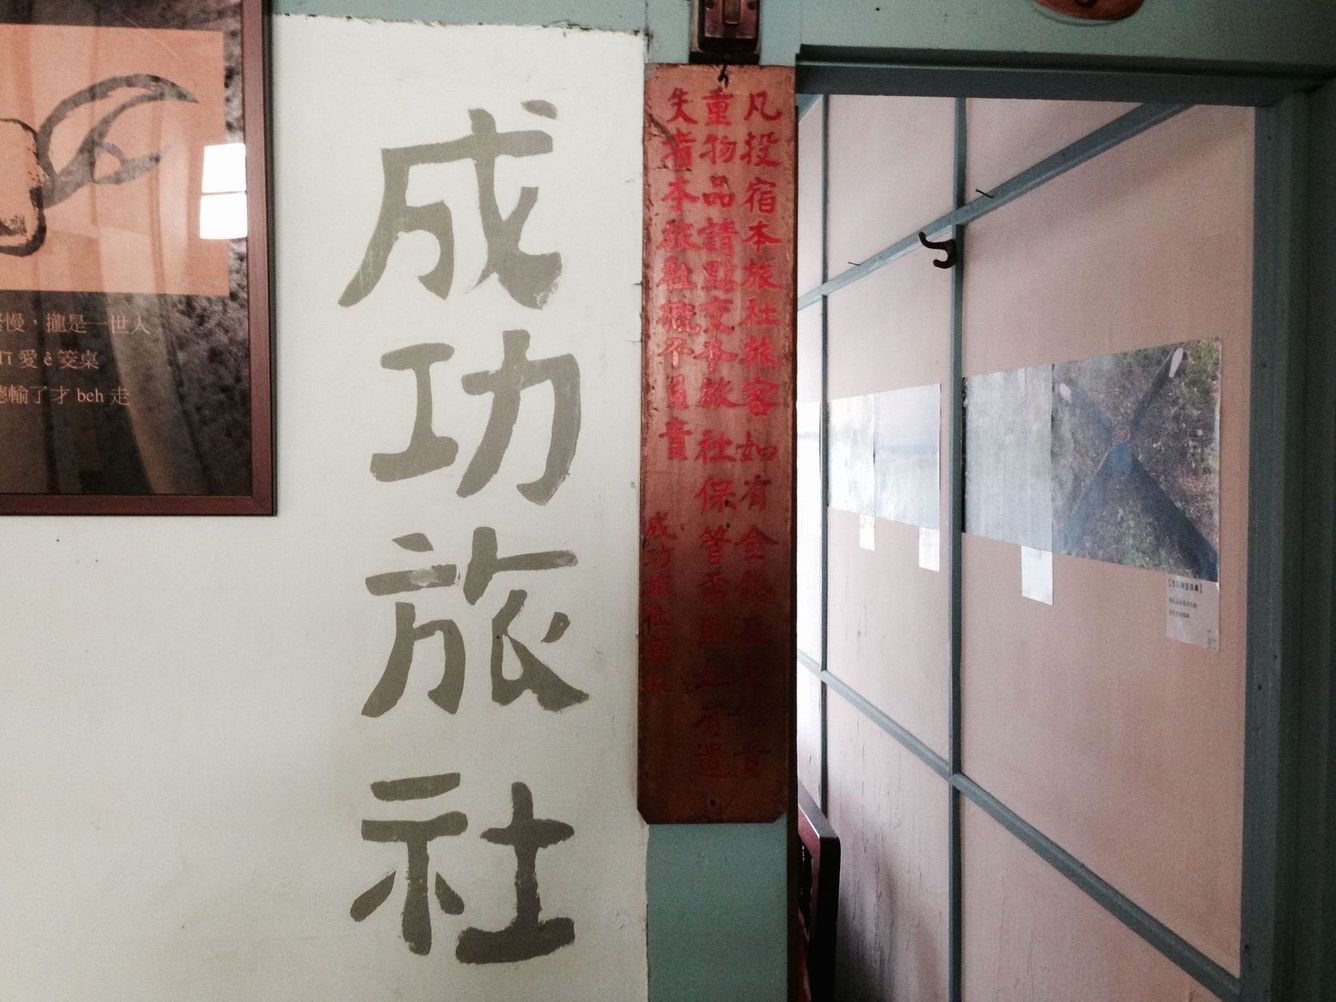 慢，攏是一世人
愛 ê 筊桌
輸了才 beh 走
成功旅社
凡投宿本旅社旅客如有金貴
重物品請點交本旅社保管否則如有遺
失者本旅社概不負責
成功旅社